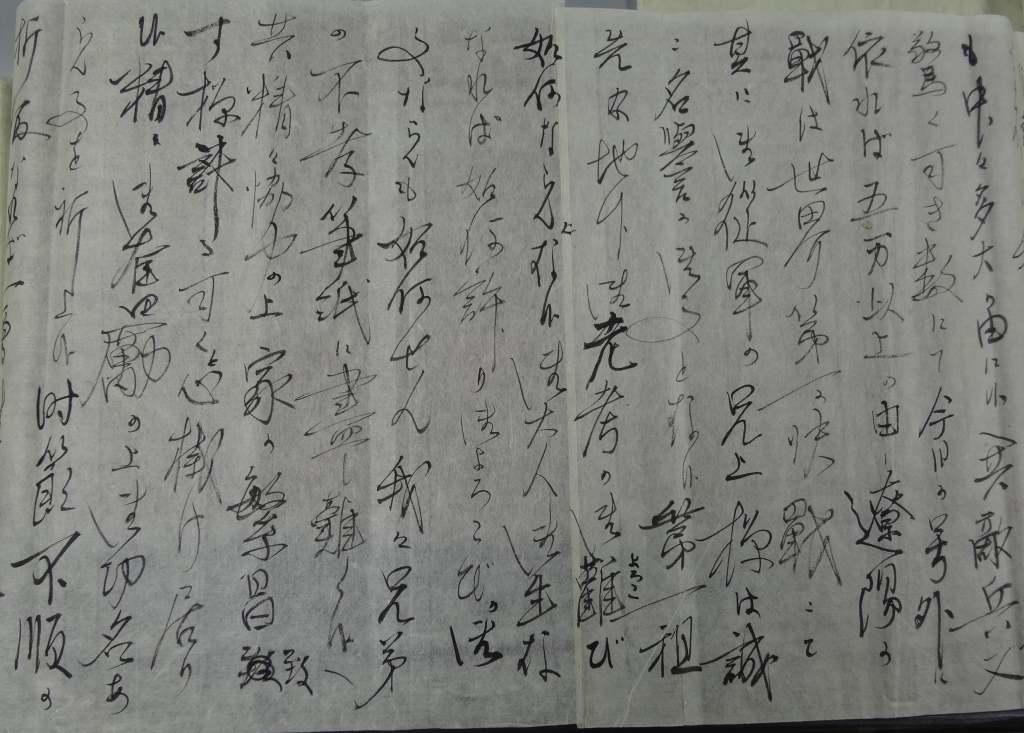 も中々多大の由に候へ共敵兵又
驚く可き数にて今日の号外に
依れば五万以上の由し遼陽の
戦は世界第一の快戦にて
其に御従軍の兄上様は誠
に名誉の御事となり第一祖
先及地下御老考の御難び
よろこ
如何ならんなれ御大人御達な
なれば如何許り御よろこび。御
事ならんも如何せん我々兄弟
の不孝筆紙に盡し難く候へ
共精々協力の上家の繁昌致
す様計る可く心掛け居り
候精々御奮励の上御功名あ
らん事を祈上候時節不順の
折